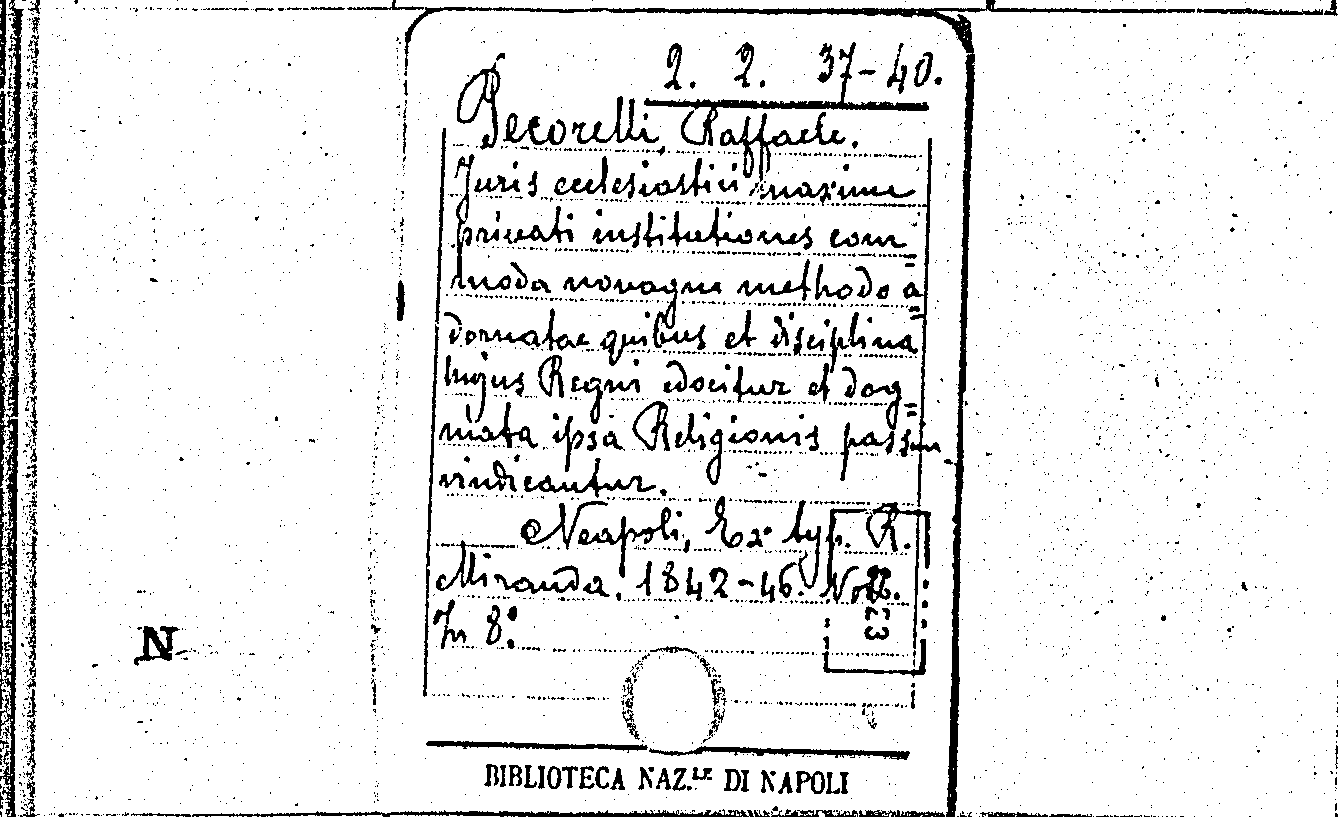 2. 2. 37-40.
Pecorelli, Raffaele.
Juris ecclesiastici maxime
privati institutiones com=
moda novaque methodo a=
dornatae quibus et disciplina
hujus Regni edocitur et dog=
mata ipsa Religionis passim
vindicantur.
Neapoli, Ex typ. R.
Miranda. 1842-46. Voll.
In 8.°
N
BIBLIOTECA NAZ.LE DI NAPOLI